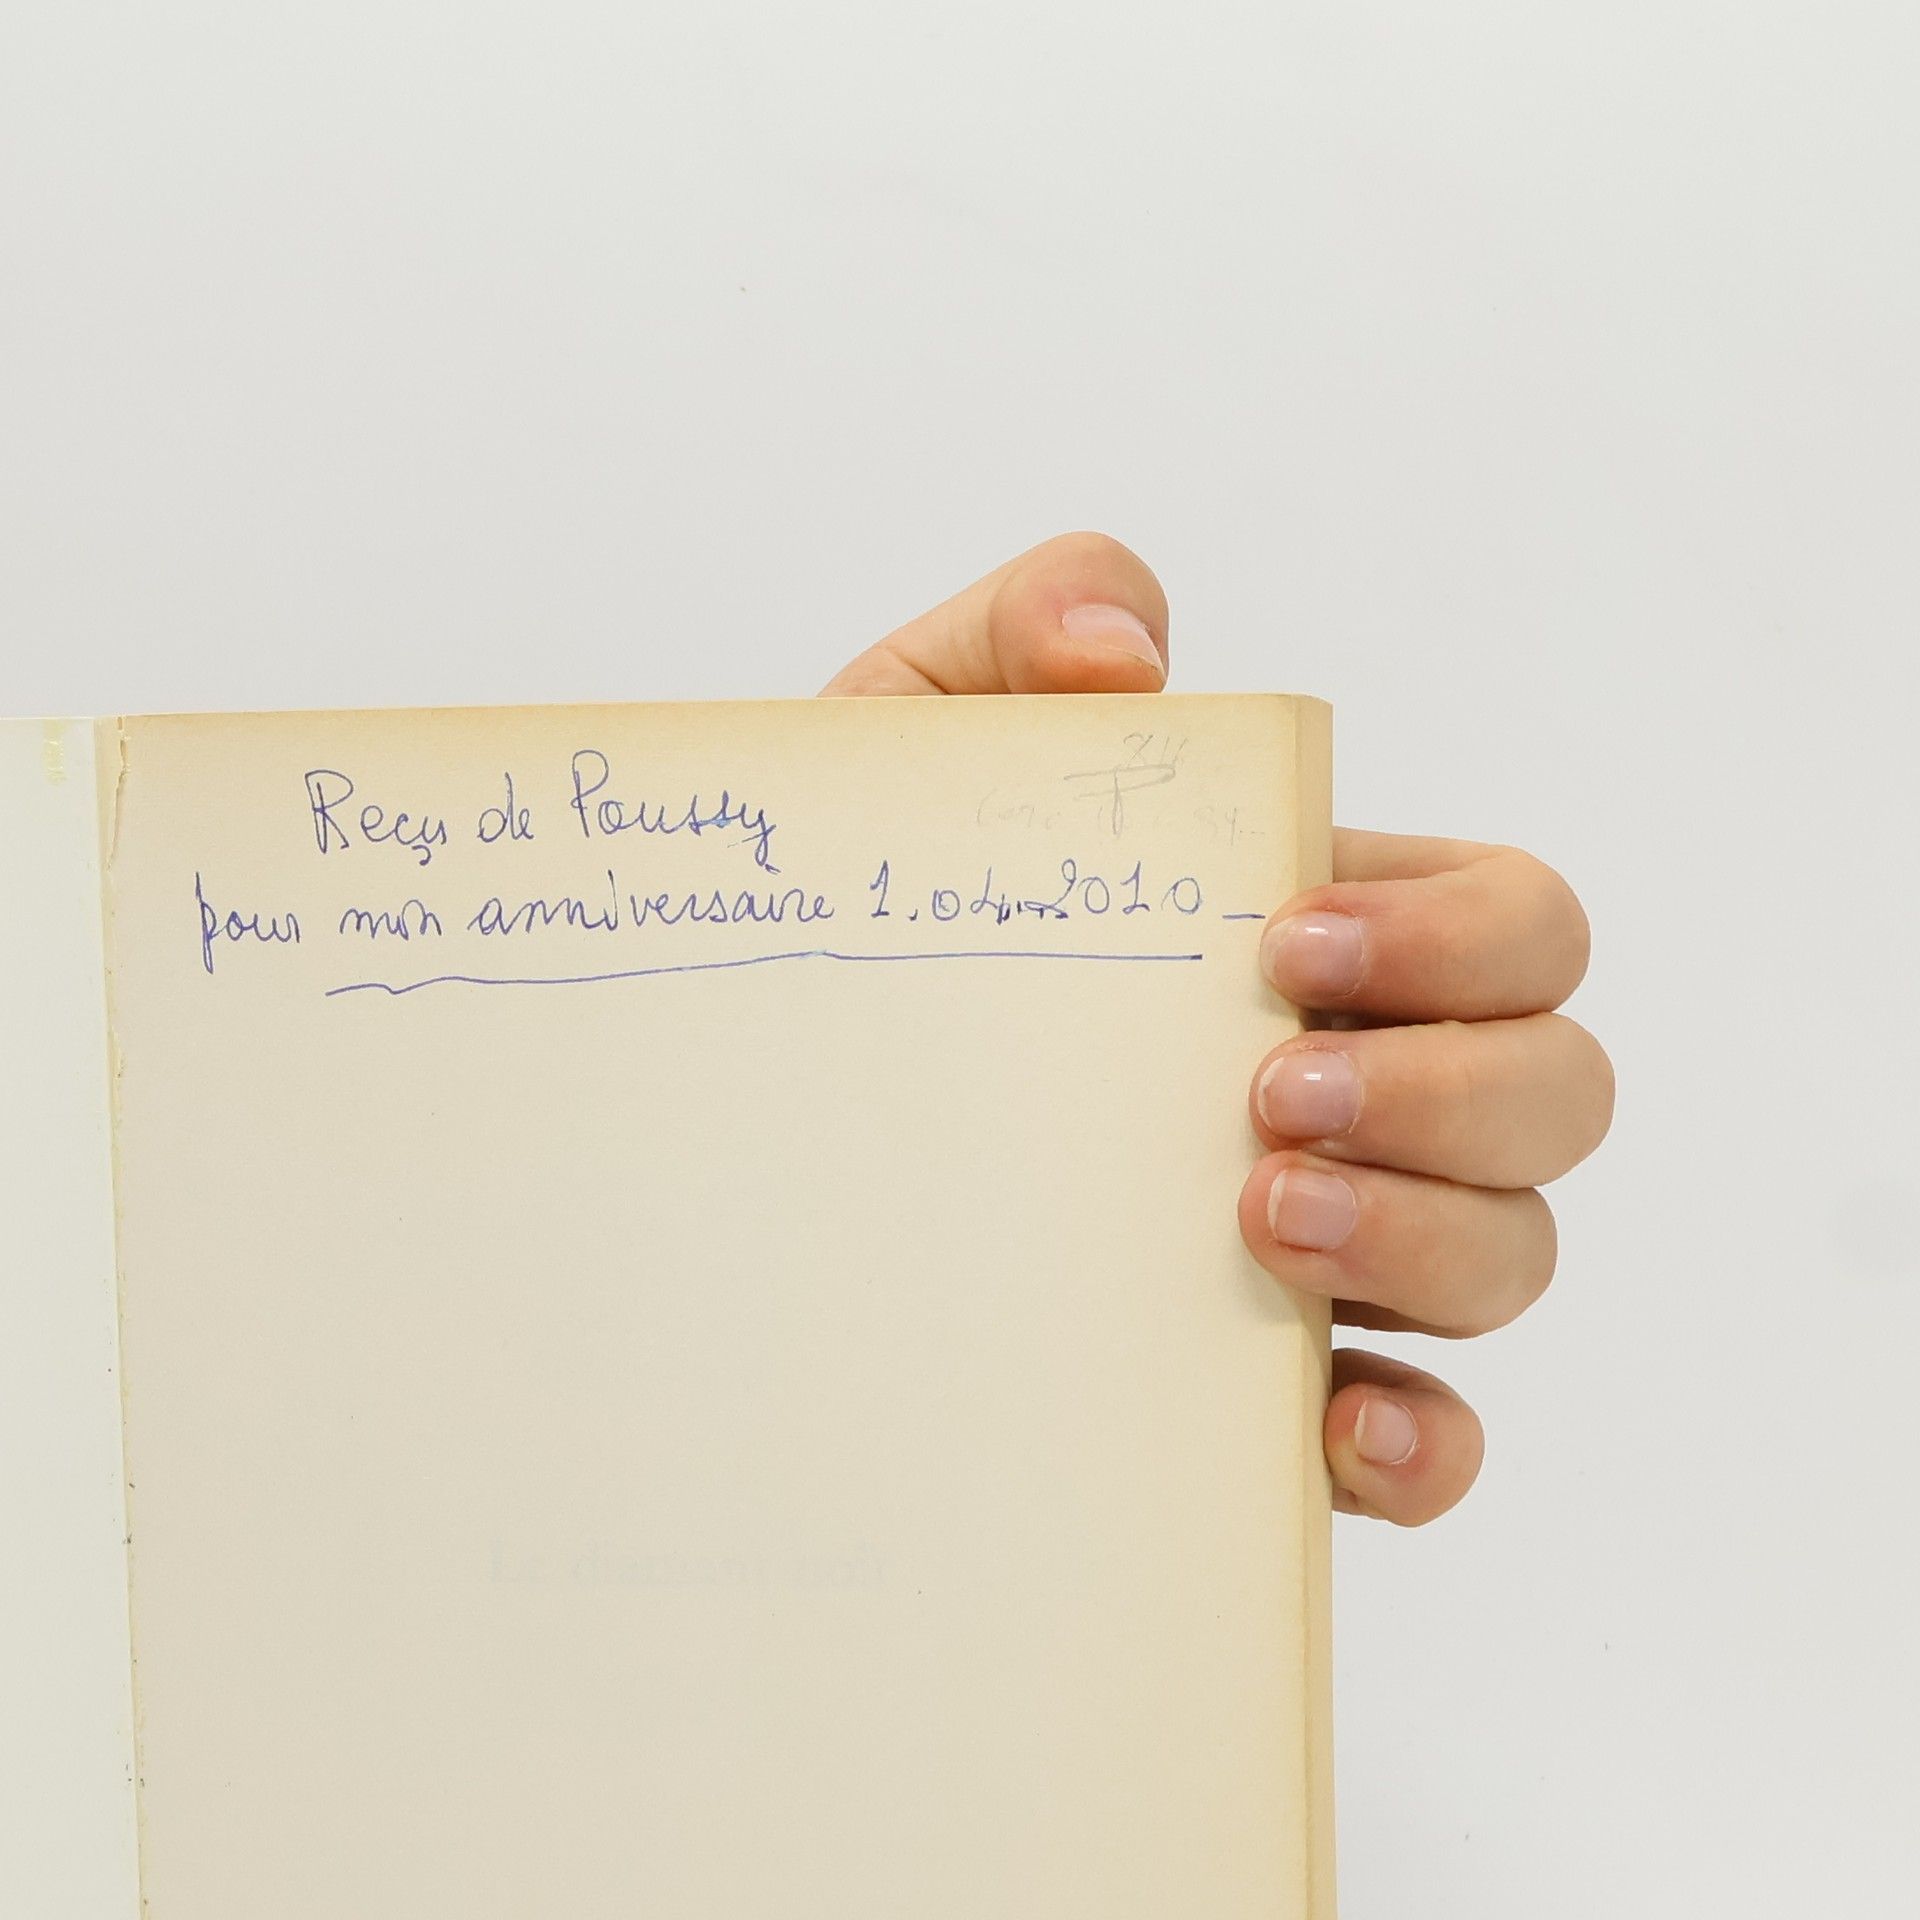 Reçu de Poussy
pour mon anniversaire 1.04.2010 _